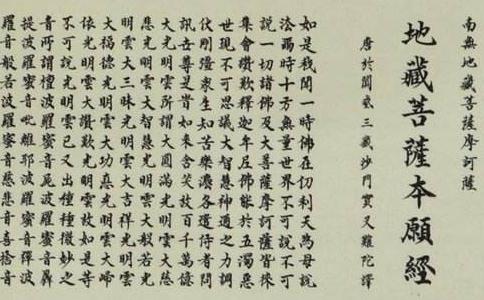 南無地藏菩薩摩訶薩
地藏菩薩本願經
唐於闐國三藏沙門實叉難陀譯
如是我聞一時佛在忉利天為母說
法爾時十方無量世界不可說不可
說一切諸佛及大菩薩摩訶薩皆來
集會讚歎釋迦牟尼佛能於五濁惡
世現不可思議大智慧神通之力調
伏剛彊眾生知苦樂法各遣侍者問
訊世尊是時如來含笑放百千萬億
大光明雲所謂大圓滿光明雲大慈
悲光明雲大智慧光明雲大般若光
明雲大三昧光明雲大吉祥光明雲
大福德光明雲大功德光明雲大歸
依光明雲大讚歎光明雲放如是等
不可說光明雲已又出種種微妙之
音所謂檀波羅蜜音尸波羅蜜音羼
提波羅蜜音毗離耶波羅蜜音禪波
羅蜜音般若波羅蜜音慈悲音喜捨音